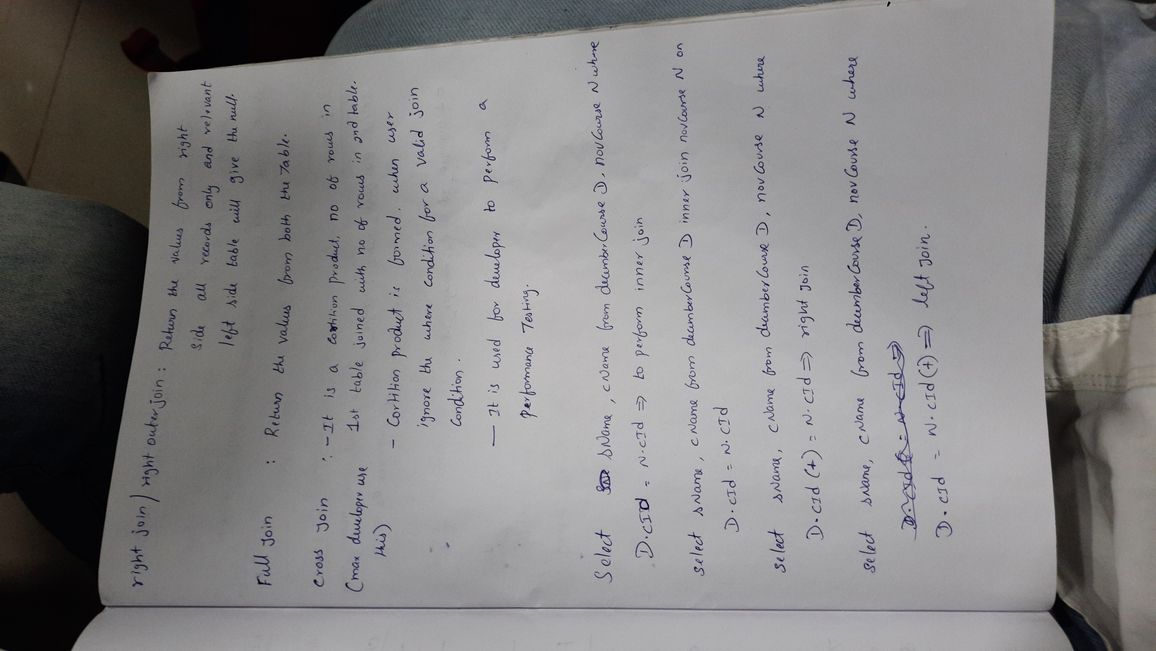 right join / right outer join : Return the values from right
side all records only and relevant
left side table will give the null.
Full Join : Return the values from both the Table.
Cross Join : - It is a cortition product, no of rows in
(max developer use 1st table joined with no of rows in 2nd table.
this) - Cortition product is formed. when user
ignore the where condition for a valid join
Condition.
- It is used for developer to perform a
performance Testing.
Select SName, CName from decemberCourse D, novCourse N where
D.CID = N.CId ⇒ to perform inner join
Select SName, CName from decemberCourse D inner join novCourse N on
D.CId = N.CId
Select SName, CName from decemberCourse D, novCourse N where
D.CId (+) = N.CId ⇒ right Join
Select SName, CName from decemberCourse D, novCourse N where
D.CId = N.CId (+) ⇒ left Join.